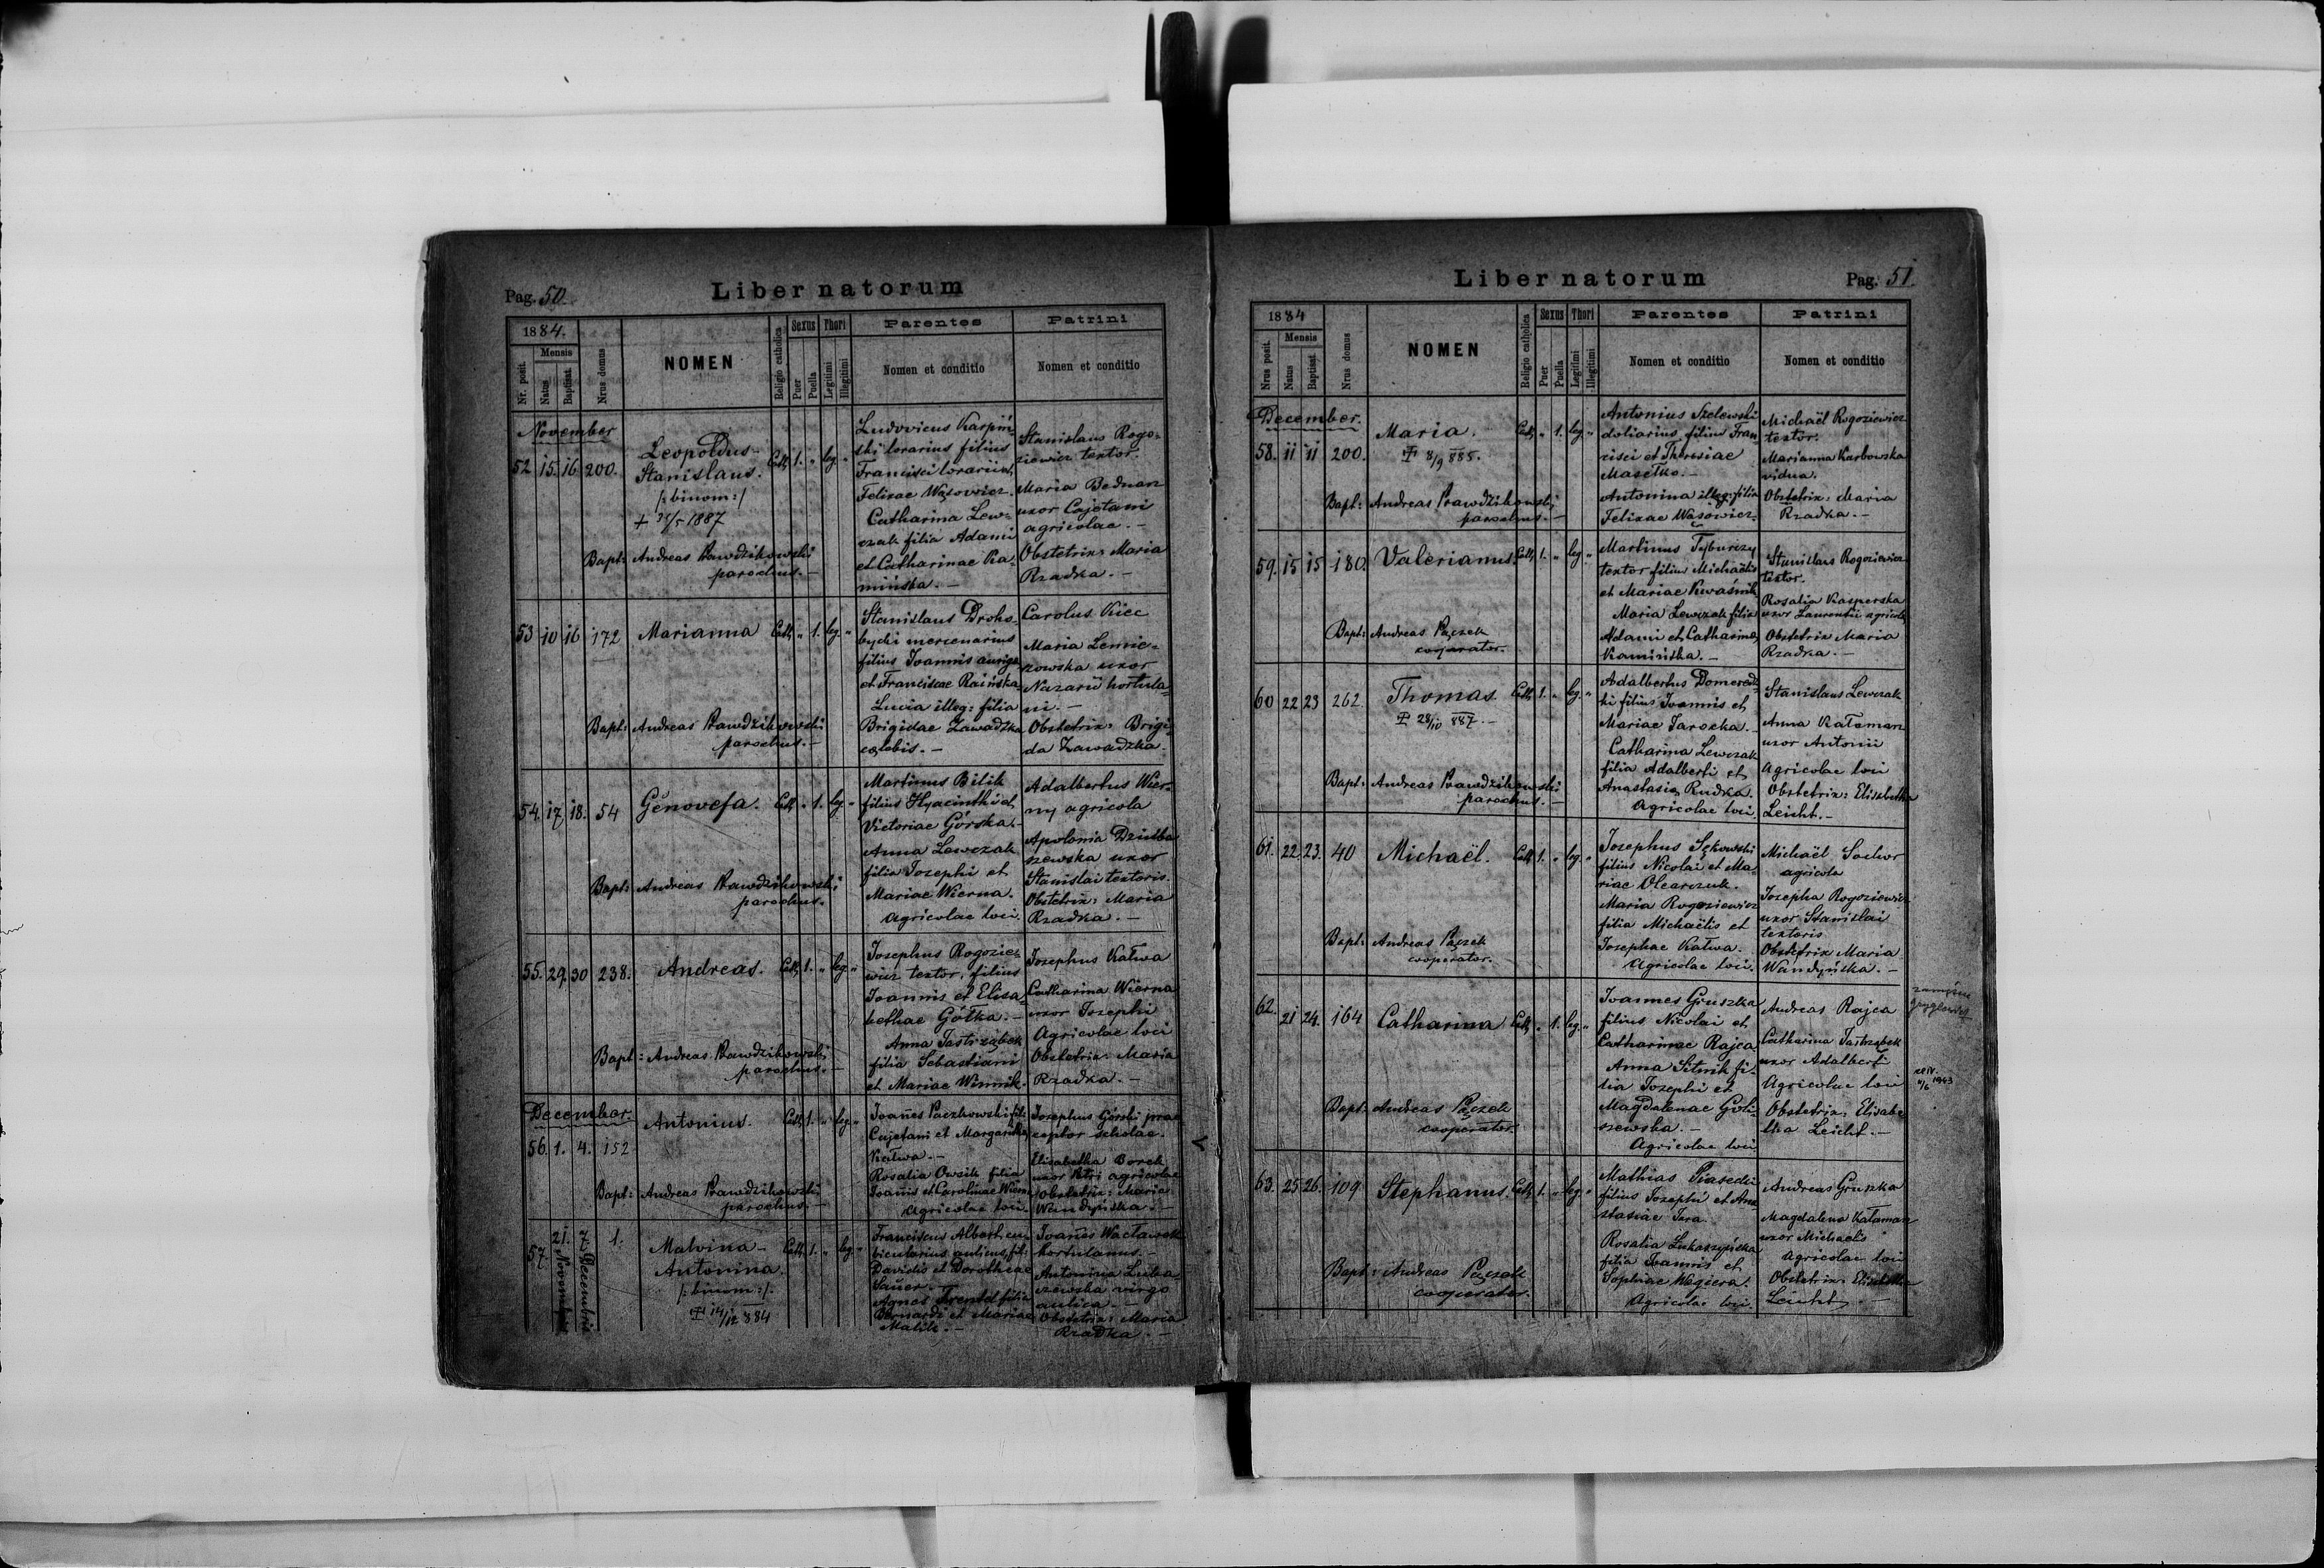 Pag. 50.
Liber natorum
1884.
Nr. posit.
Mensis
Natus
Baptisat.
Nrus domus
NOMEN
Religio catholica
Sexus
Puer
Puella
Thori
Legitimi
Illegitimi
Parentes
Nomen et conditio
Patrini
Nomen et conditio
November
52. 15. 16. 200.
Leopoldus
Stanislaus.
/:binom:/
+ 31/5 1887
Cath. 1. " leg. "
Bapt: Andreas Prawdzikowski
parochus.-
Ludovicus Karpiń-
ski lorarius filius
Francisci lorarii et
Felixae Wąsowicz.
Catharina Lew-
czak filia Adami
et Catharinae Ka-
mińska.-
Stanislaus Rogo-
ziewicz textor.
Maria Bednarz
uxor Cajetani
agricolae.-
Obstetrix: Maria
Rzadka.-
53 10 16 172
Marianna
Cath. " 1. leg. "
Bapt: Andreas Prawdzikowski
parochus.-
Stanislaus Droho-
bycki mercenarius
filius Joannis auriga
et Franciscae Raińska
Lucia illeg: filia
Brigidae Zawadzka
cœlebis.-
Carolus Kiec
Maria Lennic-
kowska uxor
Nazarii hortula-
ni.-
Obstetrix: Brigi-
da Zawadzka.
54. 17. 18. 54
Genovefa.
Cath. " 1. leg. "
Bapt: Andreas Prawdzikowski
parochus.
Martinus Bilik
filius Hyacinthi et
Victoriae Górska.-
Anna Lewczak
filia Josephi et
Mariae Wierna.
Agricolae loci.
Adalbertus Wier-
ny agricola
Apolonia Dziuba
szewska uxor
Stanislai textoris.
Obstetrix: Maria
Rzadka.-
55. 29. 30 238.
Andreas.
Cath. 1. " leg. "
Bapt: Andreas Prawdzikowski
parochus.-
Josephus Rogozie-
wicz textor, filius
Joannis et Elisa-
bethae Gółka.-
Anna Jastrzębek
filia Sebastiani
et Mariae Winnik.
Josephus Kałwa
Catharina Wierna
uxor Josephi
Agricolae loci
Obstetrix: Maria
Rzadka.-
December.
56. 1. 4. 152
Antonius.
Cath. 1. " leg. "
Bapt: Andreas Prawdzikowski
parochus.-
Joañes Paczkowski fil:
Cajetani et Margaritha
Kałwa.-
Rosalia Owsik filia
Joañis et Carolinae Wierna
Agricolae loci.
Josephus Górski prae
ceptor scholae.
Elisabetha Borek
uxor Petri agricolae
Obstetrix: Maria
Wandyńska.-
57. 21. Novembris 7. Decembris 1.
Malvina-
Antonina.
/:binom:/.
✝ 14/12 884
Cath. 1. " leg. "
Franciscus Albert cu-
bicularius aulicus, fil:
Davidis et Dorotheae
Sauer.-
Agnes Trentel filia
Bernardi et Mariae
Malik.-
Joañes Wacławsk
hortulanus.-
Antonina Luba
szewska virgo
aulica.-
Obstetrix: Maria
Rzadka.-
Liber natorum
Pag. 51.
1884
Nrus posit.
Mensis
Natus
Baptisat.
Nrus domus
NOMEN
Religio catholica
Sexus
Puer
Puella
Thori
Legitimi
Illegitimi
Parentes
Nomen et conditio
Patrini
Nomen et conditio
December.
58. 11 11 200.
Maria.
✝ 8/9 885.
Cath. " 1. leg. "
Bapt: Andreas Prawdzikowski
parochus.-
Antonius Szelewski
doliarius, filius Fran
cisci et Theresiae
Masełko.-
Antonina illeg: filia
Felixae Wąsowicz.
Michaël Rogoziewicz
textor.
Marianna Karbowska
vidua.
Obstetrix: Maria
Rzadka.-
59. 15 15 180.
Valerianus.
Cath. 1. " leg. "
Bapt: Andreas Pączek
cooperator.
Martinus Tyburczy
textor filius Michaëlis
et Mariae Kwaśnik
Maria Lewczak filia
Adami et Catharinae
Kamińska.-
Stanislaus Rogoziewicz
textor.
Rosalia Kasperska
uxor Laurentii agricola
Obstetrix Maria
Rzadka.-
60 22 23 262.
Thomas.
✝ 28/10 887.-
Cath. 1. " leg. "
Bapt: Andreas Prawdzikowski
parochus.-
Adalbertus Domeredz-
ki filius Joannis et
Mariae Jarocka.-
Catharina Lewczak
filia Adalberti et
Anastasiae Rudka.
Agricolae loci.
Stanislaus Lewczak
Anna Kałaman
uxor Antonii
Agricolae loci
Obstetrix: Elisabetha
Leicht.-
61. 22. 23. 40
Michaël.
Cath. 1. " leg. "
Bapt: Andreas Pączek
cooperator.
Josephus Sękowski
filius Nicolai et Ma-
riae Olearczuk.
Maria Rogoziewicz
filia Michaëlis et
Josephae Kałwa.
Agricolae loci.
Michaël Sochor
agricola
Josepha Rogoziewicz
uxor Stanislai
textoris.
Obstetrix Maria
Wandyńska.-
62. 21 24. 164
Catharina
Cath. " 1. leg. "
Bapt: Andreas Pączek
cooperator.
Joannes Gruszka
filius Nicolai et
Catharinae Rajca
Anna Sitnik fi-
lia Josephi et
Magdalenae Goli-
szewska.-
Agricolae loci
Andreas Rajca
Catharina Jastrzębek
uxor Adalberti
Agricolae loci
Obstetrix: Elisabe
tha Leicht.-
1943
63. 25 26. 109
Stephanus.
Cath. 1. " leg. "
Bapt: Andreas Pączek
cooperator.
Mathias Piasecki
filius Josephi et Ana
stasiae Jara.
Rosalia Łukaszyńska
filia Joannis et
Sophiae Węgiera.
Agricolae loci.
Andreas Gruszka
Magdalena Kałaman
uxor Michaelis
Agricolae loci
Obstetrix: Elisabetha
Leicht.-